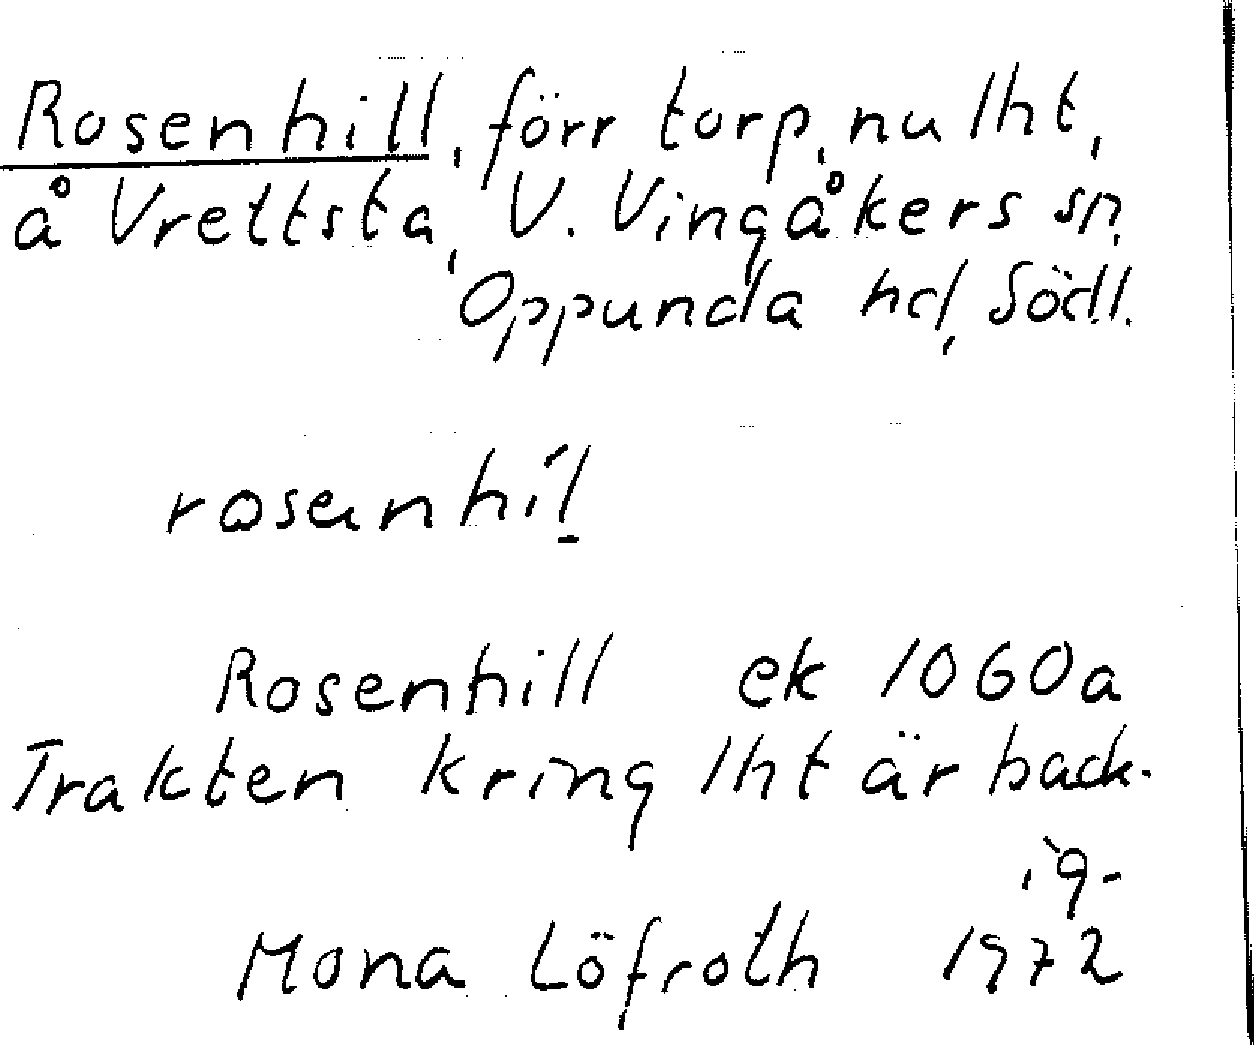 Rosenhill, förr torp, nu lht,
å Vrettsta, V. Vingåkers sn,
Oppunda hd, Södl.
rosenhil̠
Rosenhill ek 1060a
Trakten kring lht är back-
ig.
Mona Löfroth 1972